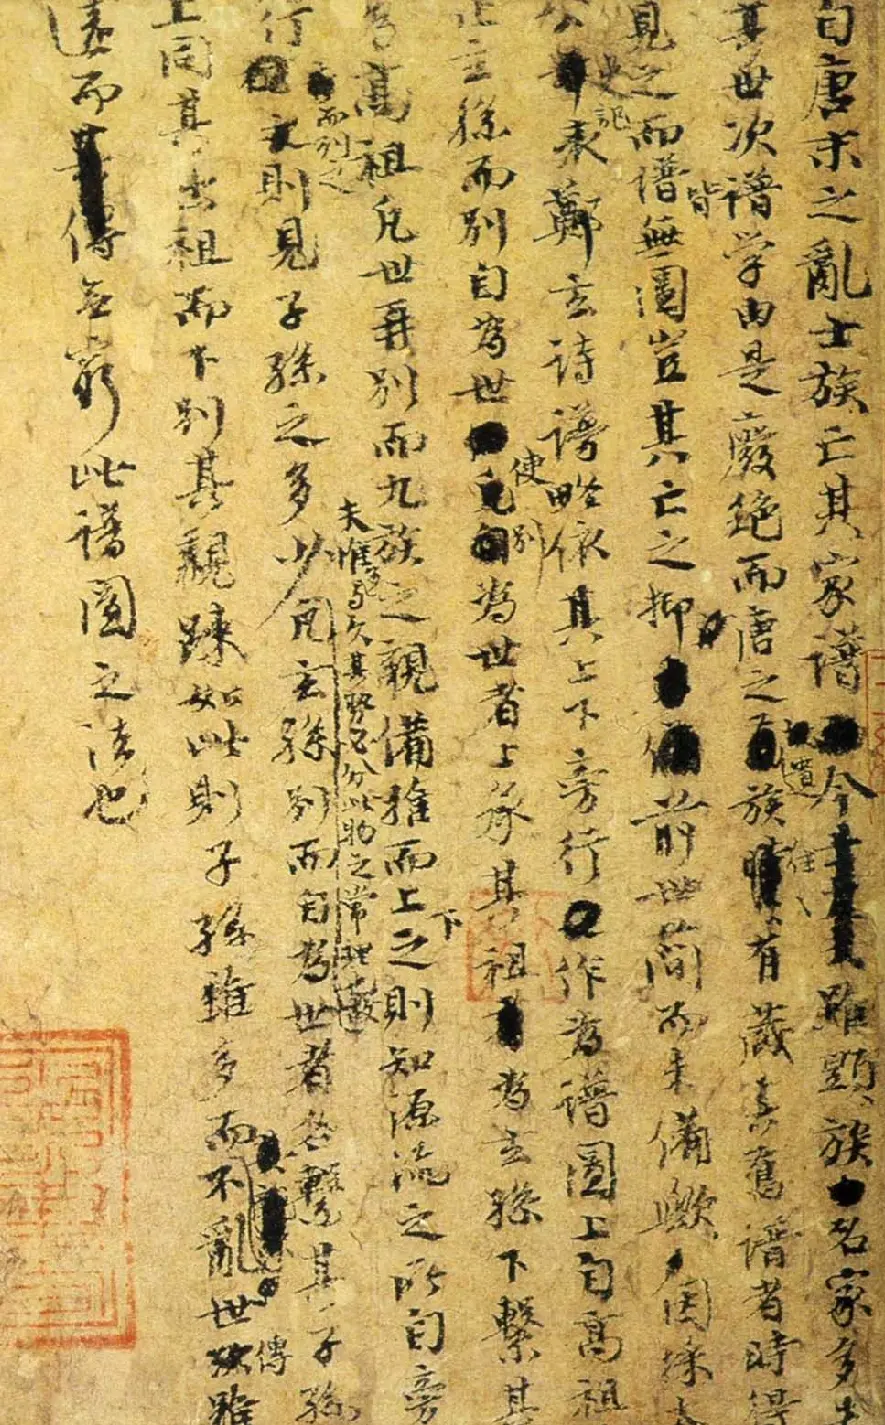 自唐末之亂士族亡其家譜今雖顯族名家多失
其世次譜学由是廢絶而唐之遺族往〻有藏其舊譜者時得
見之而譜皆無圖豈其亡之抑前世簡而未備歟因採太
公史記表鄭玄詩譜略依其上下旁行作為譜圖上自高祖
止玄孫而別自為世使別為世者上承其祖為玄孫下繫其
為高祖凡世再別而九族之親備推而上下之則知源流之所自旁
行而列之則見子孫之多少夫惟多與久其勢必分此物之常理也凡玄孫別而自為世者各繫其子孫
上同其出祖而下別其親踈如此則子孫雖多而不亂世傳雖
遠而無窮此譜圖之法也